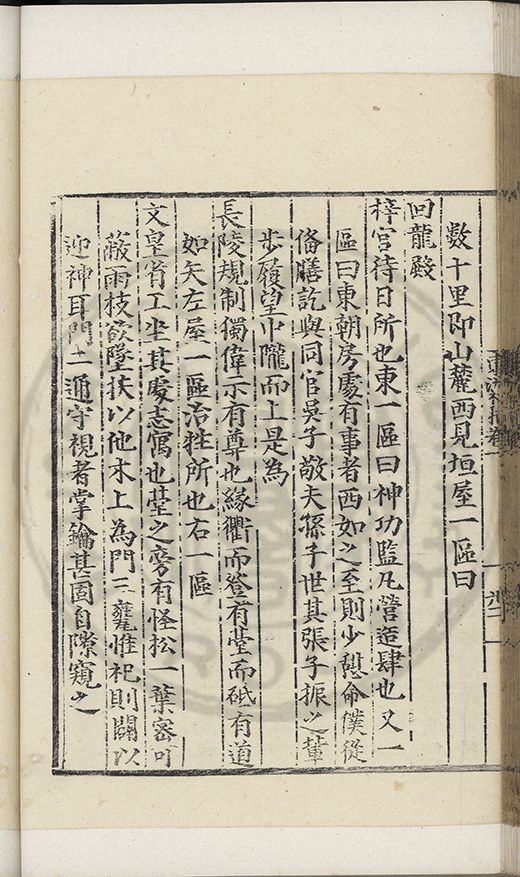 數十里即山麓西見垣屋一區曰
回龍殿
梓宮待日所也東一區曰神功監凡營造肆也又一
區曰東朝房處有事者西如之至則少憇命僕從
偹膳訖與同官吳子敬夫孫子世其張子振之輩
步履望中隴而上是為
長陵規制獨偉示有尊也緣衢而登有䑓而砥有道
如矢左屋一區治牲所也右一區
文皇省工坐其處志寓也䑓之旁有怪松一葉審可
蔽雨枝欲墜扶以他木上為門三甕惟祀則闢以
迎神耳門二通守視者掌鑰甚固自隙窺之